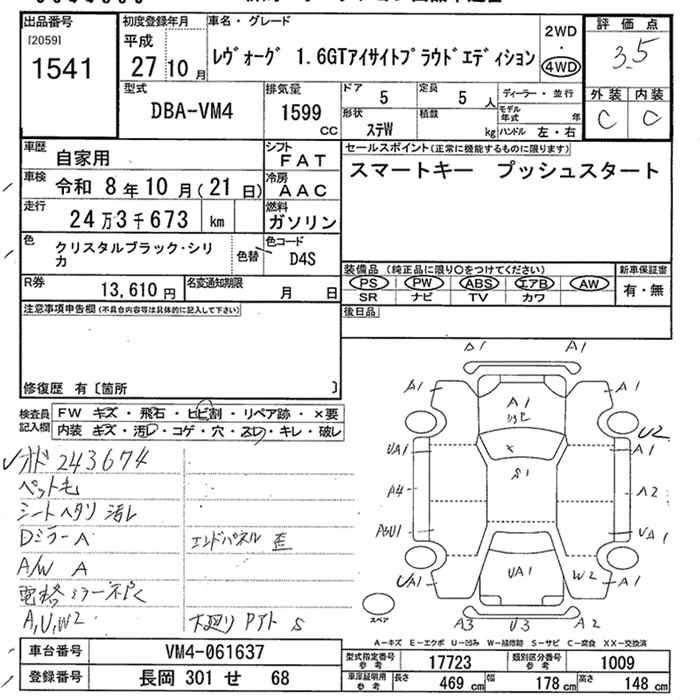 出品番号
[2059]
1541
初度登録年月
平成
27 10 月
車名・グレード
レヴォーグ 1.6GTアイサイトプラウドエディション
2WD
・
4WD
評価点
3.5
外装 内装
C C
型式
DBA-VM4
排気量
1599
CC
ドア
5
定員
5 人
形状
ステW
積載
kg
ディーラー・並行
モデル年式 年
ハンドル 左・右
車歴
自家用
シフト
FAT
車検
令和 8年10月(21日)
冷房
AAC
走行
24万3千673 km
燃料
ガソリン
色
クリスタルブラック・シリカ
色替
色コード
D4S
R券
13,610円
名変通知期限
月 日
セールスポイント(正常に機能するものに限ります)
スマートキー プッシュスタート
装備品 (純正品に限り○をつけてください)
PS PW ABS エアB AW
SR ナビ TV カワ
新車保証書
有・無
後日品
注意事項申告欄(不具合内容等は具体的に記入して下さい)
修復歴 有〔箇所 〕
検査員記入欄
FW キズ・飛石・ヒビ割・リペア跡・×要
内装 キズ・汚レ・コゲ・穴・スレ・キレ・破レ
オド 243674
ペット毛
シートヘタリ 汚レ
Dミラー A
A/W A
電格ミラー不良
A,U,W2
エンドパネル 歪
下廻り Pアト S
A1 A1
A1 A1
A1
U2
UA1
S1
A4 A2
UA1
UA1 UA1 W2 A1
A3 U3 A2
スペア
A-キズ E-エクボ U-凹み W-補修跡 S-サビ C-腐食 XX-交換済
車台番号
VM4-061637
登録番号
長岡 301 せ 68
型式指定番号 参考
17723
類別区分番号 参考
1009
車庫証明用 参考
長さ 469 cm 幅 178 cm 高さ 148 cm